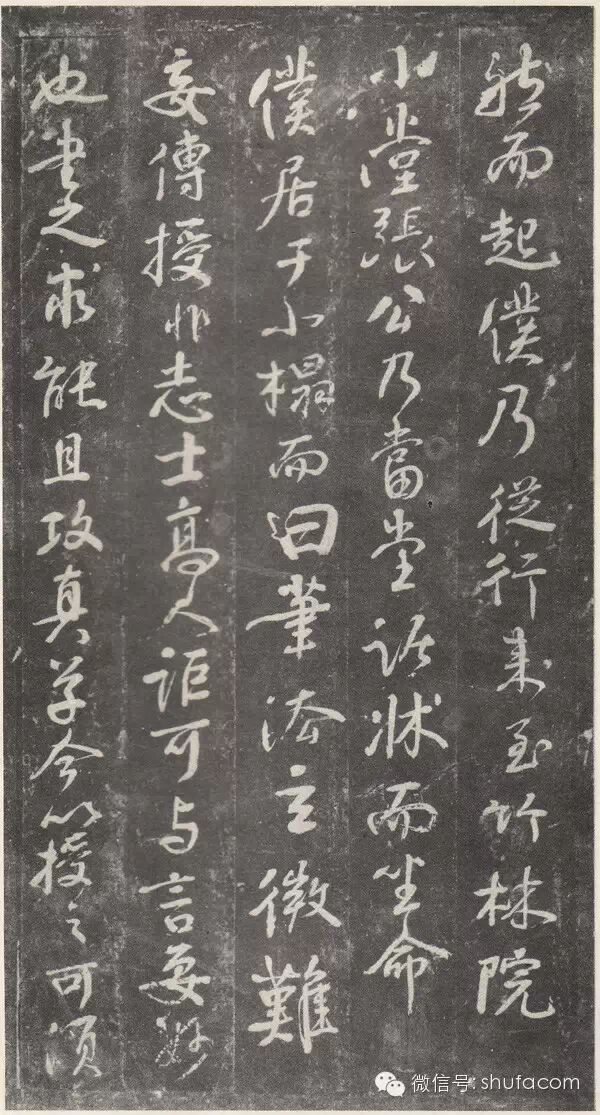 然而起僕乃從行来至竹林院
小堂張公乃當堂踞牀而坐命
僕居于小榻而曰筆法玄微難
妄傳授非志士高人讵可与言要妙
也書之求能且攻真草今以授之可須
微信号: shufacom